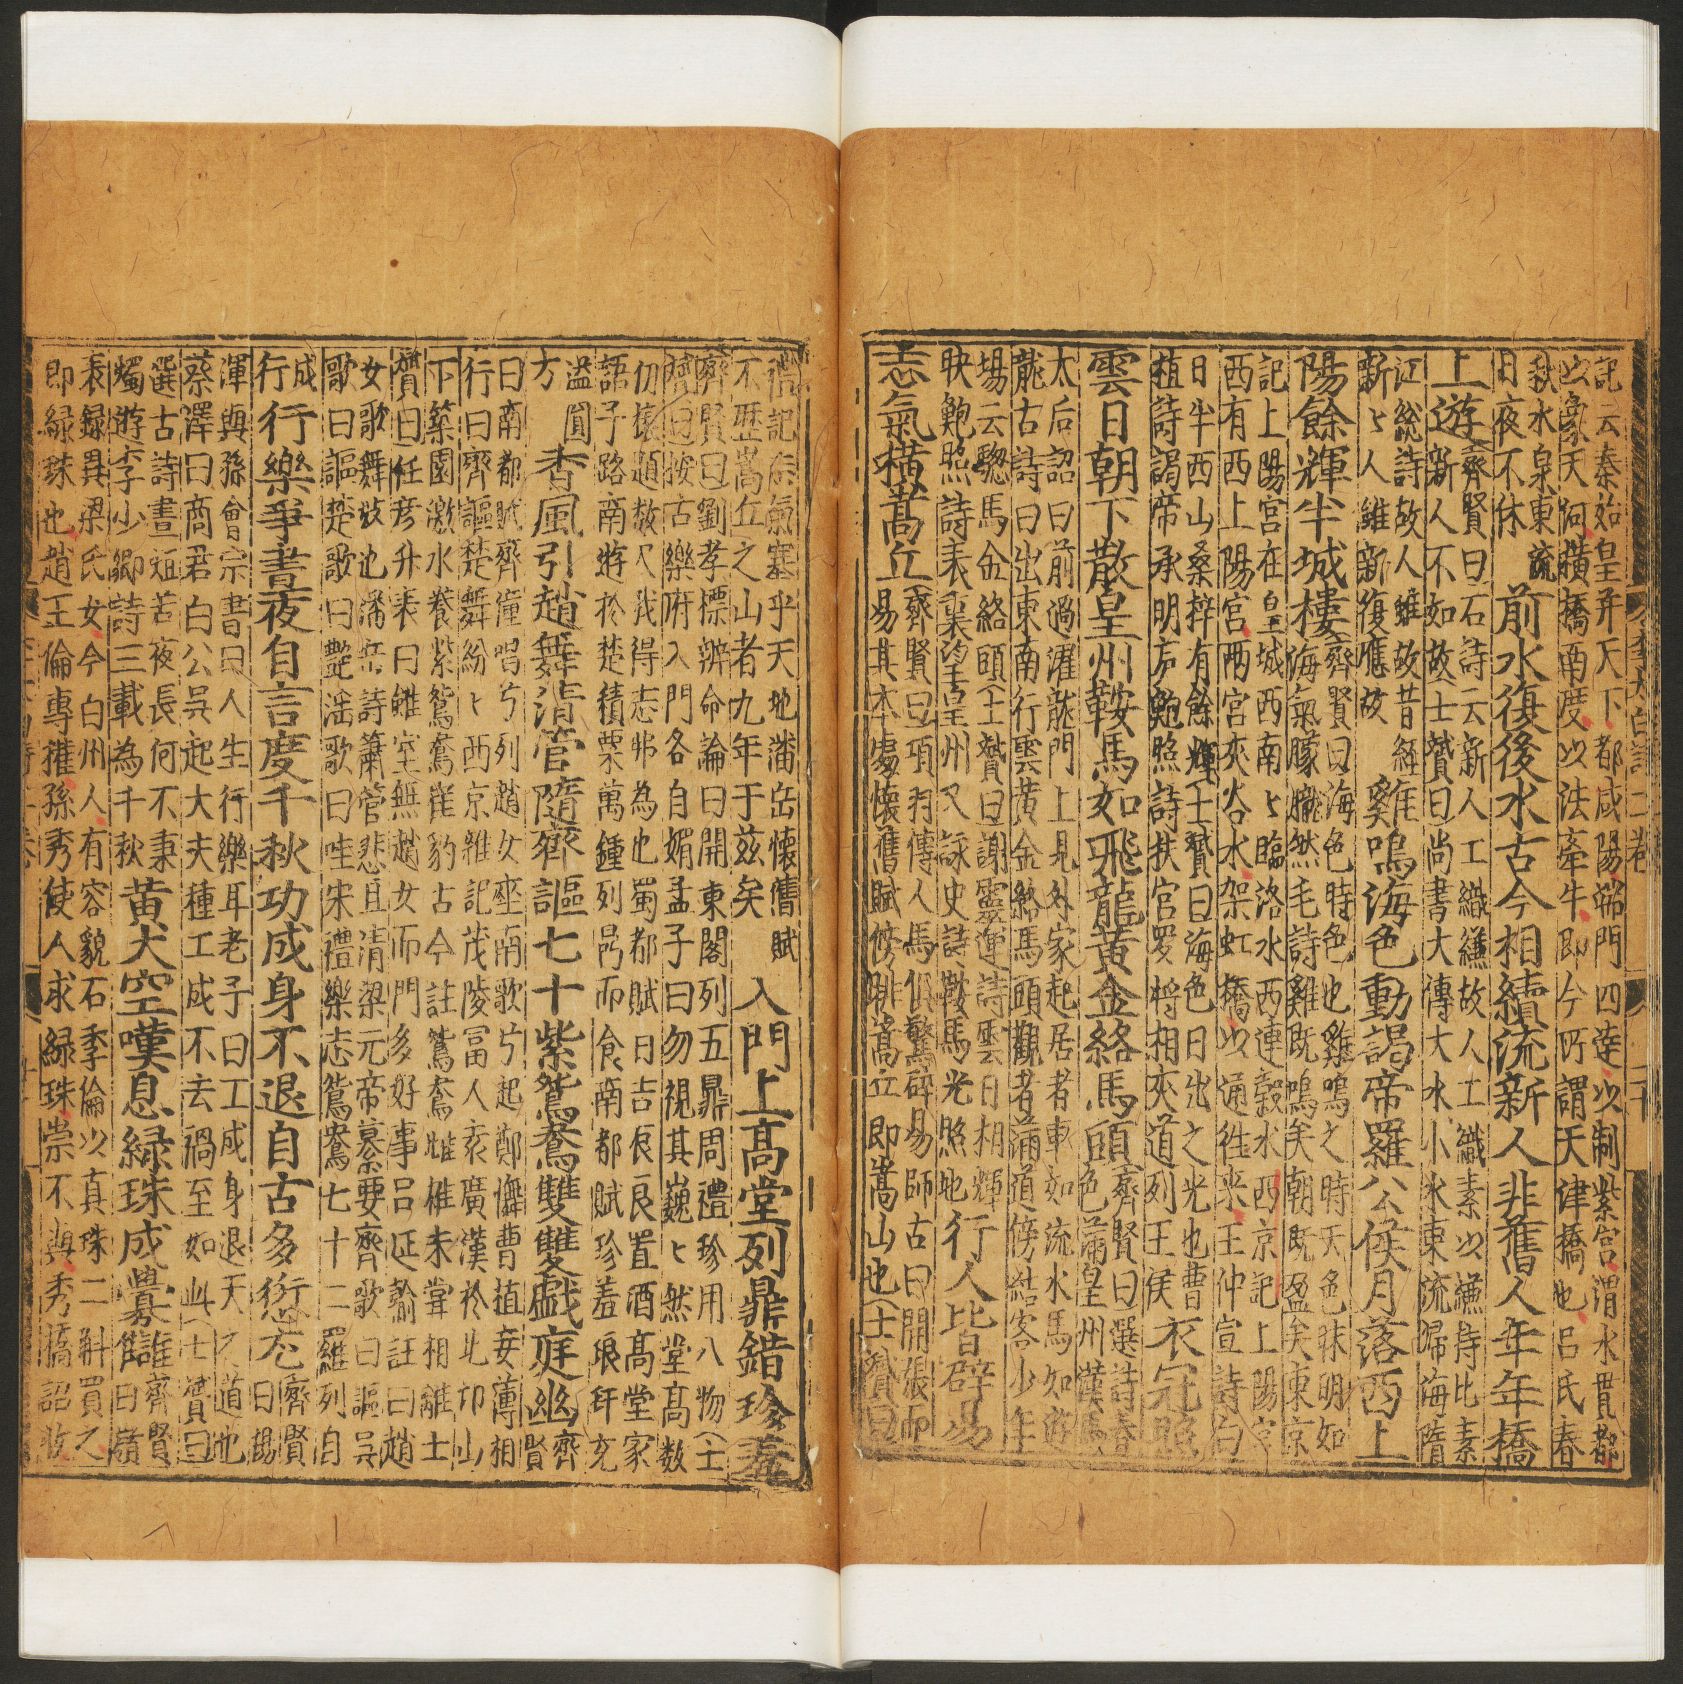 記云秦始皇并天下都咸陽端門四達以制紫宮渭水貫都
以象天河橫橋南度以法牽牛即今所謂天津橋也呂氏春
秋水泉東流
日夜不休
前水復後水古今相續流新人非舊人年年橋
上遊
齊賢曰石詩云新人工織縑故人工織素以縑持比素
新人不如故士贇曰尚書大傳大水小水東流歸海隋
江總詩故人雖故昔經
新〻人雖新復應故
雞鳴海色動謁帝羅公侯月落西上
陽餘輝半城樓
齊賢曰海色時色也雞鳴之時天色昧明如
海氣朦朧然毛詩雞既鳴矣朝既盈矣東京
記上陽宮在皇城西南〻臨洛水西連穀水西京記上陽宮
西有西上陽宮兩宮夾谷水架虹橋以通往來王仲宣詩白
日半西山桑梓有餘輝士贇曰海色日出之光也曹
植詩謁帝承明廬鮑照詩扶宮羅將相夾道列王侯
衣冠照
雲日朝下散皇州鞍馬如飛龍黃金絡馬頭
齊賢曰選詩春
色滿皇州漢馬
太后詔曰前過濯龍門上見外家起居者車如流水馬如游
龍古詩曰出東南行雲黃金絡馬頭觀者滿道傍結客少年
場云驄馬金絡頭士贇曰謝靈運詩雲日相輝
映鮑照詩表裏望皇州又詠史詩鞍馬光照地
行人皆辟易
志氣橫嵩丘
齊賢曰項羽傳人馬俱驚辟易師古曰開張而
易其本處懷舊賦傍眺嵩丘即嵩山也士贇曰
禮記志氣塞乎天地潘岳懷舊賦
不歷嵩丘之山者九年于茲矣
入門上高堂列鼎錯珍羞
齊賢曰劉孝標辨命論曰開東閣列五鼎周禮珍用八物士
贇曰按古樂府入門各自媚孟子曰勿視其巍〻然堂高數
仞榱題數尺我得志弗為也蜀都賦曰吉日良辰置酒高堂家
語子路南遊於楚積粟萬鍾列鼎而食南都賦珍羞琅玕充
溢圓
方
香風引趙舞清管隨齊謳七十紫鴛鴦雙雙戲庭幽
齊賢
曰南都賦齊僮唱兮列趙女座南歌兮起鄭儛曹植妾薄相
行曰齊謳楚舞紛〻西京雜記茂陵富人袁廣漢於北邙山
下築園激水養紫鴛鴦崔豹古今註鴛鴦雌雄未嘗相離士
贇曰任彥升表曰雖室無趙女而門多好事呂延齡註曰趙
女歌舞妓也潘岳詩簫管悲且清梁元帝纂要齊歌曰謳吳
歌曰謳楚歌曰艷淫歌曰哇宋禮樂志鴛鴦七十二羅列自
成
行
行樂爭晝夜自言度千秋功成身不退自古多愆尤
齊賢
曰楊
渾與孫會宗書曰人生行樂耳老子曰工成身退天之道也
蔡澤曰商君白公吳起大夫種工成不去禍至如此士贇曰
選古詩晝短苦夜長何不秉
燭遊李少卿詩三載為千秋
黃犬空嘆息緑珠成釁讎
齊賢
曰嶺
表録異梁氏女今白州人有容貌石季倫以真珠二斛買之
即緑珠也趙王倫專權孫秀使人求緑珠崇不與秀矯詔收